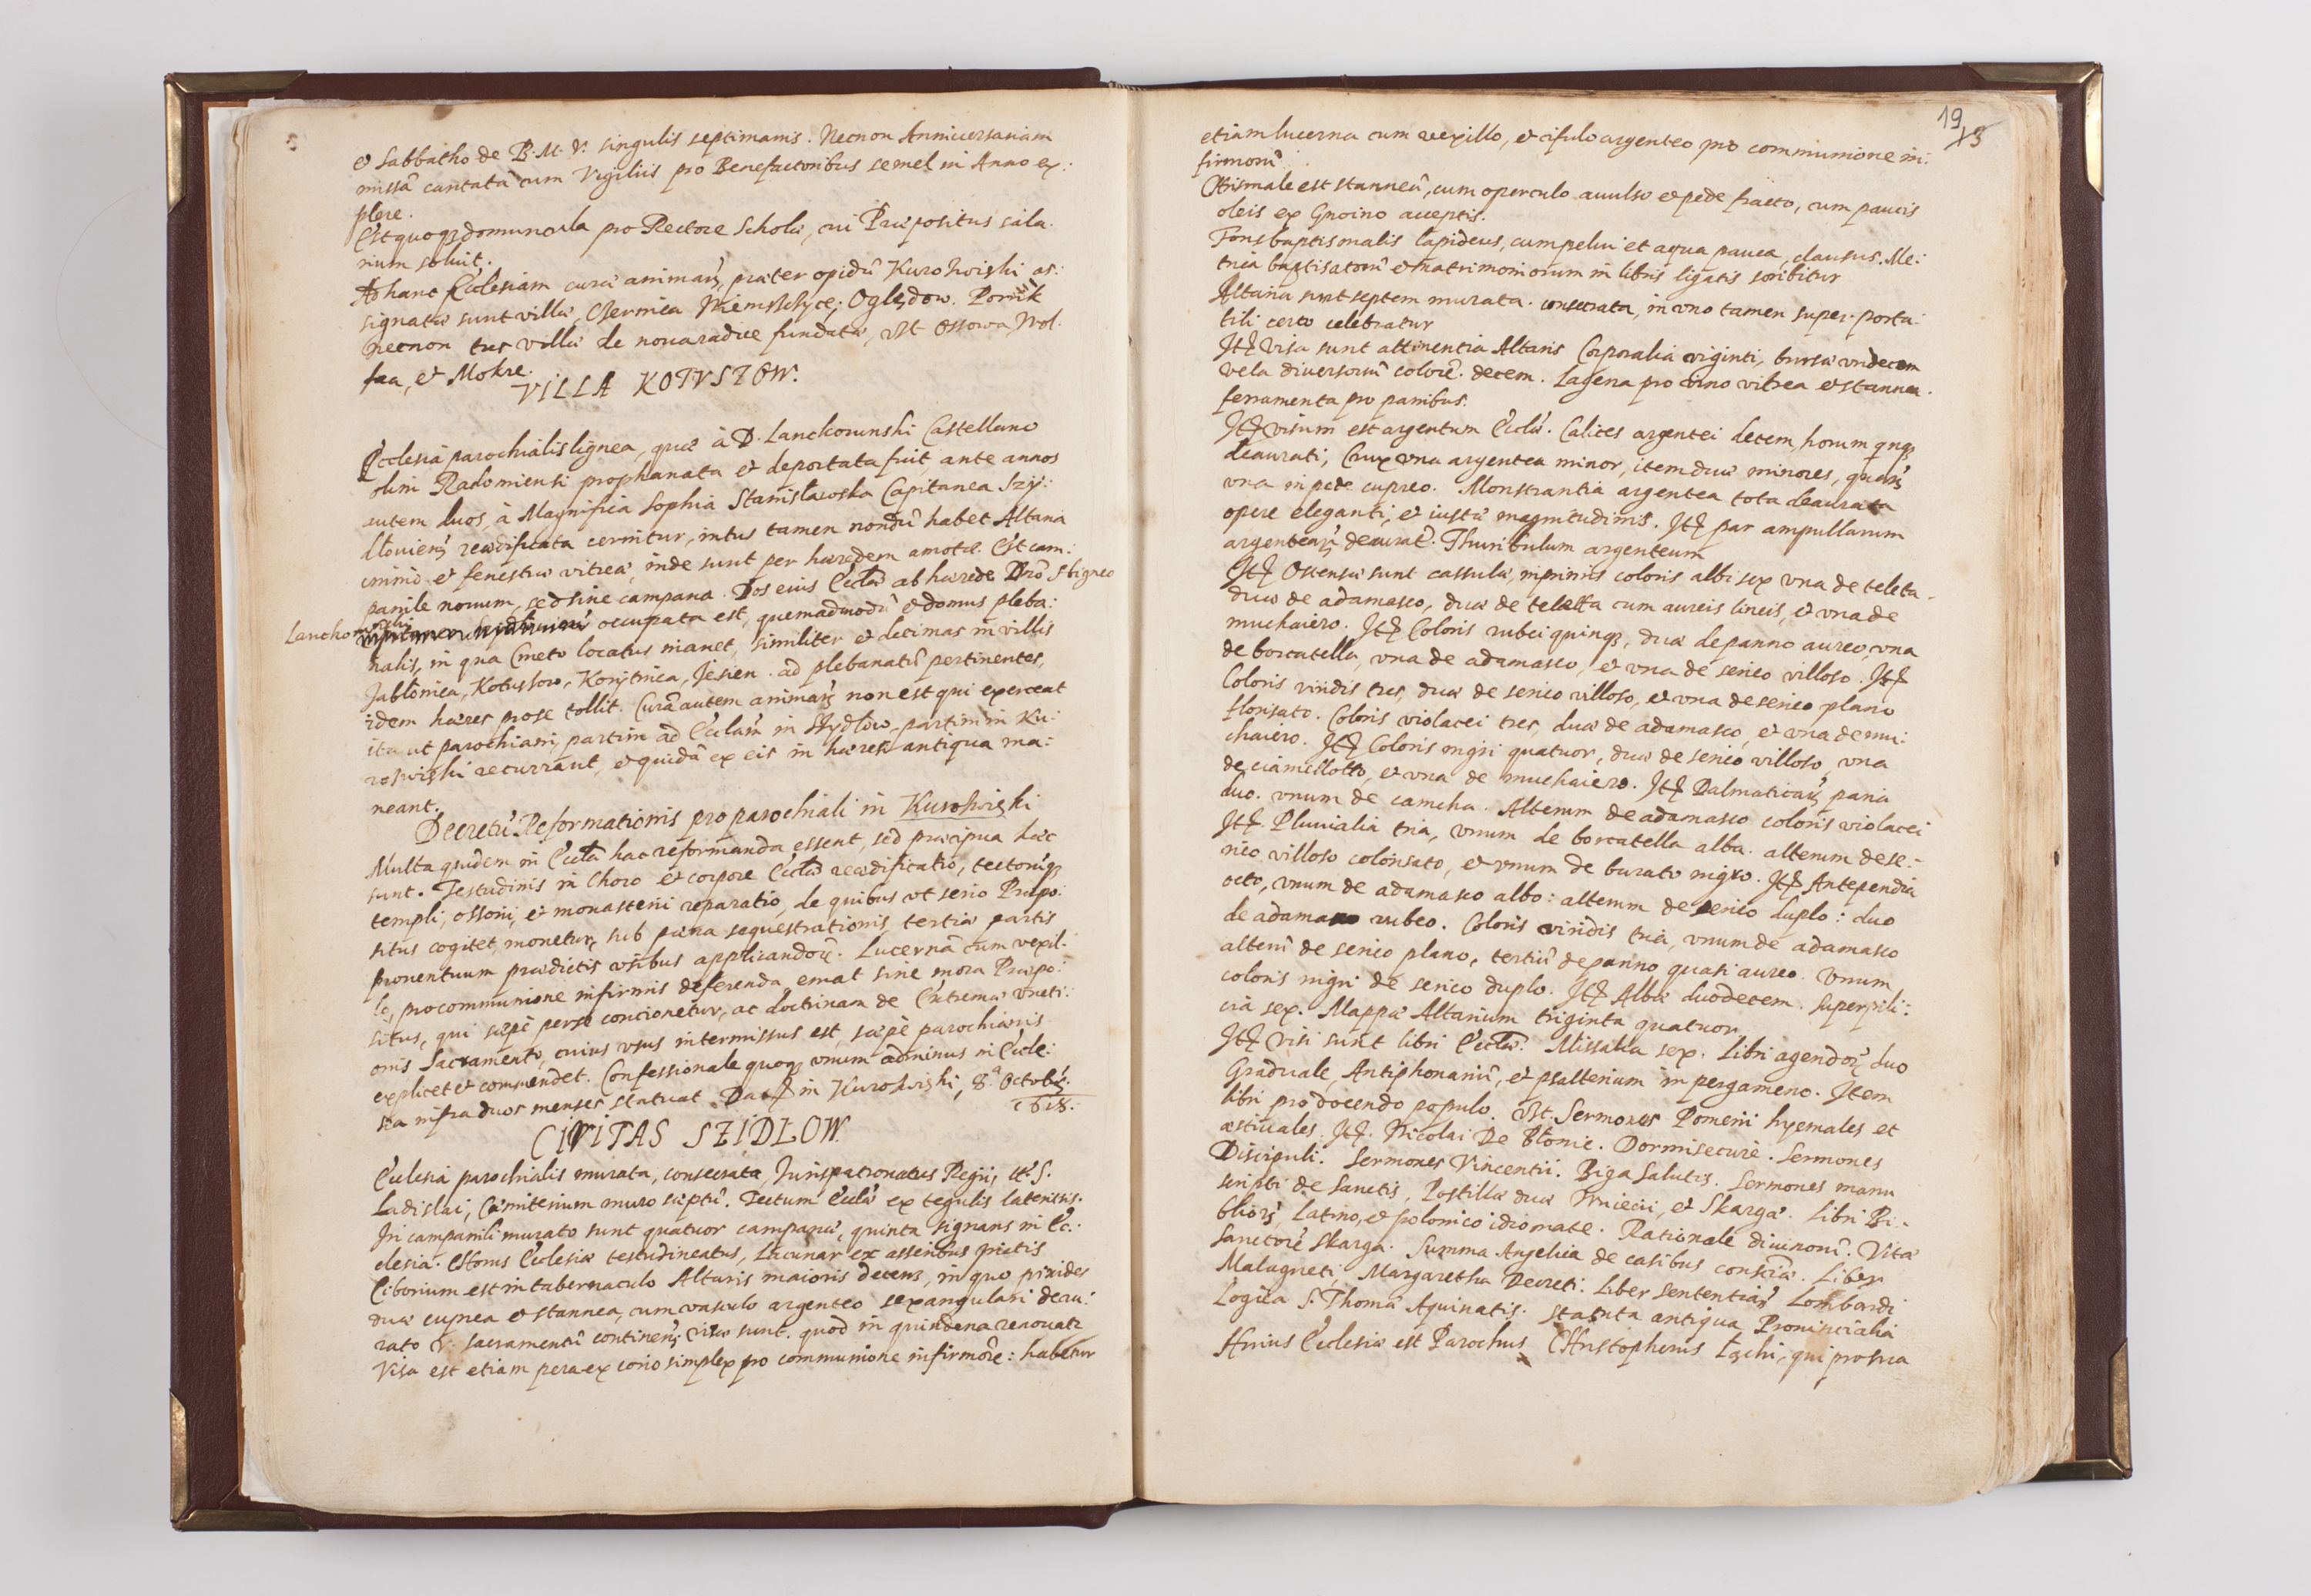 et Sabbatho de B. M. V. singulis septimanis. Necnon Anniuersariam
missã cantatã cum Vigiliis pro Benefactoribus semel in Anno ex:
plere.
Est quoqȝ domuncula pro Rectore Scholæ, cui Præpositus sala
rium soluit.
Ad hanc Ecclesiam curæ animarũ, præter opidũ Kurozwẹki as:
signatæ sunt villæ, Czernica Niemsczyce, Oglẹdow. Ponik
necnon tres villæ de noua radice fundatæ, vt Ossowa Wol
ka, et Mokre.
VILLA KOTVSZOW.
Ecclesia parochialis lignea, quæ à D. Lanckorunski Castellano
olim Radomiensi prophanata et deportata fuit, ante annos
autem duos, à Magnifica Sophia Stanisławska Capitanea Szy:
dłouien̄ reædificata cernitur, intus tamen nondũ habet Altaria
imò et fenestræ vitreæ, inde sunt per hæredem amotæ. Est cam:
panile nouum, sed sine campana. Dos eius Eccl̃æ ab hærede Dnõ Sbigneo
Lanckorunski occupata est, quemadmodũ et domus pleba:
nalis, in qua Cmeto locatus manet, similiter et decimas in villis
Jabłonica, Kotuszow, Korytnica, Jesien. ad plebanatũ pertinentes,
idem hæres pro se tollit. Curã autem animarũ non est qui exerceat
ita ut parochiani partim ad Eccl̃am in Szydlow, partim in Ku:
rozwẹki recurrant, et quidã ex eis in hæresi antiqua ma:
neant.
Decretũ Reformationis pro parochiali in Kurozwẹki
Multa quidem in Eccl̃a hac reformanda essent, sed præcipua hæc
sunt. Testudinis in Choro et corpore Eccl̃æ reædificatio, tectorũqȝ
templi, ossorij, et monasterii reparatio, de quibus vt serio Præpo:
situs cogitet, monetur, sub pœna sequestrationis tertiæ partis
prouentuum prædictis vsibus applicandorũ. Lucernã cum vexil:
lo, pro communione infirmis deferenda, emat sine mora Præpo:
situs, qui sæpè per se concionetur, ac doctrinam de Extremæ vncti:
onis Sacramento, cuius vsus intermissus est, sæpè parochianis
explicet et commendet. Confessionale quoqȝ vnum adminus in Eccle:
sia infra duos menses statuat. Dat̃ in Kurozwẹki, 8ª Octobris.
1618.
CIVITAS SZIDLOW.
Ecclesia parochialis murata, consecrata, Jurispatronatus Regij, tt. S.
Ladislai, Cæmiterium muro sæptũ. Tectum Eccl̃æ ex tegulis lateritiis.
In campanili murato sunt quatuor campanæ, quinta signans in Ec:
clesia. Chorus Ecclesiæ testudineatus, Lacunar ex asseribus pictis
Ciborium est in tabernaculo Altaris maioris decens, in quo pixides
duæ cuprea et stannea, cum vasculo argenteo sexangulari deau:
rato V. sacramentũ continens visæ sunt. quod in quindena renouatr
Visa est etiam pera ex corio simplex pro communione infirmorũ: habetur
19
13
etiam lucerna cum vexillo, et cifulo argenteo pro communione in:
firmorũ.
Chrismale est stanneũ, cum operculo auulso et pede fracto, cum paucis
oleis ex Gnoino acceptis.
Fons baptismalis lapideus, cum pelui et aqua pauca, clausus. Me:
trica baptisatorũ et matrimoniorum in libris ligatis scribitur
Altaria sunt septem murata. consecrata, in vno tamen super porta:
tili certo celebratur
Itȝ visa sunt attinentia Altaris Corporalia viginti, bursæ vndecem
vela diuersorũ colorũ decem. Lagena pro vino vitrea et stannea.
ferramenta pro panibus.
Itȝ visum est argentum Eccl̃æ. Calices argentei decem, horum qnqȝ
deaurati, Crux vna argentea minor, item duæ minores, quarũ
vna in pede cupreo. Monstrantia argentea tota deaurata
opere eleganti, et iustæ magnitudinis. Itȝ par ampullarum
argentearũ deaurat̃. Thuribulum argenteum
Itȝ Ostensæ sunt cassulæ, inprimis coloris albi sex vna de teleta
duæ de adamasco, duæ de teletta cum aureis lineis, et vna de
muchaiero. Itȝ Coloris rubei quinqȝ, duæ de panno aureo, vna
de borcatella, vna de adamasco, et vna de serico villoso. Itȝ
Coloris viridis tres, duæ de serico villoso, et vna de serico plano
florisato. Coloris violacei tres, duæ de adamasco, et vna de mu:
chaiero. Itȝ Coloris nigri quatuor, duæ de serico villoso, vna
de ciamellotto, et vna de muchaiero. Itȝ Dalmaticarũ paria
duo. vnum de camcha. Alterum de adamasco coloris violacei
Itȝ Pluuialia tria, vnum de borcatella alba. alterum de se:
rico villoso colorisato, et vnum de burato nigro. Itȝ Antependia
octo, vnum de adamasco albo: alterum de serico duplo: duo
de adamasco rubeo. Coloris viridis tria, vnum de adamasco
alterũ de serico plano, tertiũ de panno quasi aureo. Vnum
coloris nigri de serico duplo. Itȝ Albæ duodecem. Superpili:
cia sex. Mappæ Altarium triginta quatuor
Itȝ Visi sunt libri Eccl̃æ. Missalia sex. Libri agendorũ duo
Graduale, Antiphonariũ, et psalterium in pergameno. Item
libri pro docendo populo. Vt. Sermones Pomerii hyemales et
æstiuales. Itȝ. Nicolai De Błonie. Dormi secure. Sermones
Discipuli. Sermones Vincentii. Biga Salutis. Sermones manu
scripti de Sanctis. Postillæ duæ Wuiecii, et Skargæ. Libri Bi:
bliorũ, Latino, et polonico idiomate. Rationale diuinorũ. Vitæ
Sanctorũ Skarga. Summa Angelica de casibus consciæ. Liber
Malagneti, Margaretha Decreti. Liber Sententiarũ Lombardi
Logica S. Thomæ Aquinatis. Statuta antiqua Prouincialia
Huius Ecclesiæ est Parochus Christopherus Łẹcki, qui pro sua